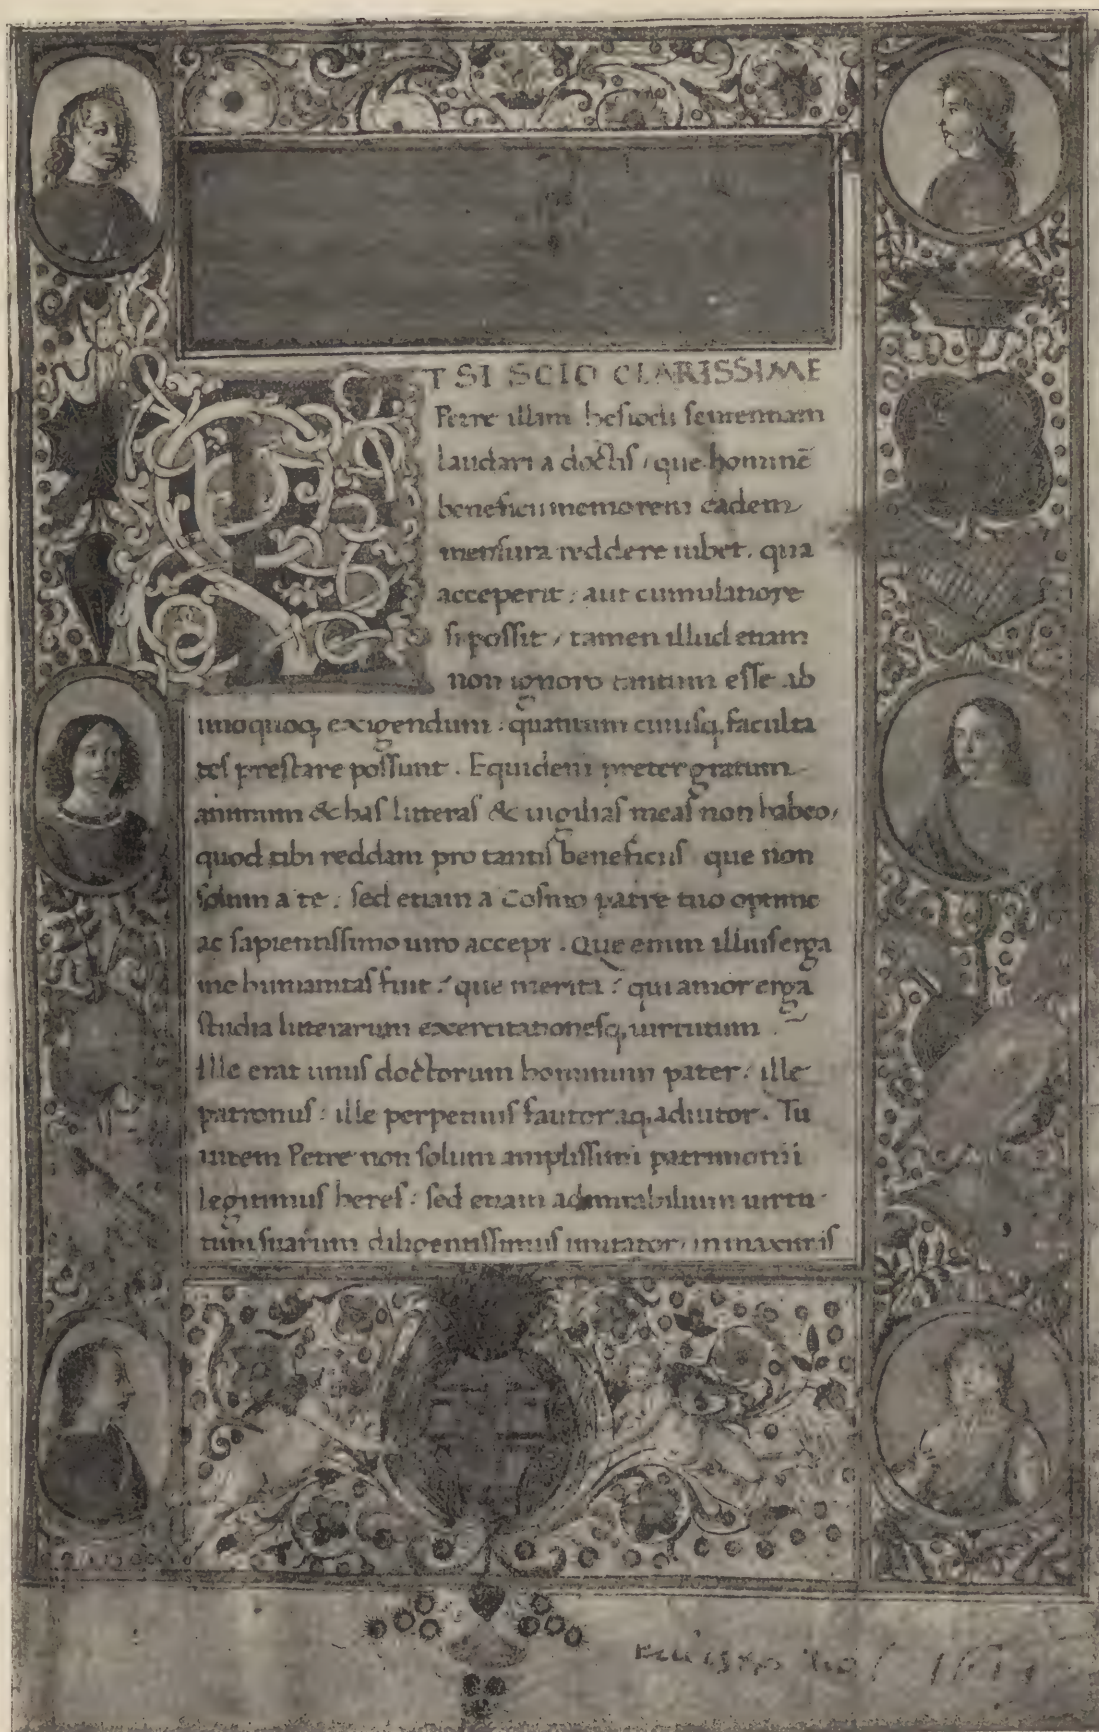 ET SI SCIO CLARISSIME
Petre illam hesiodi sententiam
laudari a doctis / que hominē
beneficii memorem eadem
mensura reddere iubet. qua
acceperit: aut cumulatiore
si possit / tamen illud etiam
non ignoro tantum esse ab
unoquoq; exigendum: quantum cuiusq; faculta
tes prestare possunt. Equidem preter gratum
animum & has litteras & uigilias meas non habeo/
quod tibi reddam pro tantis beneficiis que non
solum a te: sed etiam a Cosmo patre tuo optimo
ac sapientissimo uiro accepi. Que enim illius erga
me humanitas fuit? que merita? qui amor erga
studia litterarum exercitationesq; uirtutum
Ille erat unus doctorum hominum pater: ille
patronus: ille perpetuus fautor atq; adiutor. Tu
autem Petre non solum amplissimi patrimonii
legitimus heres: sed etiam admirabilium uirtu
tum suarum diligentissimus imitator/ in maximis